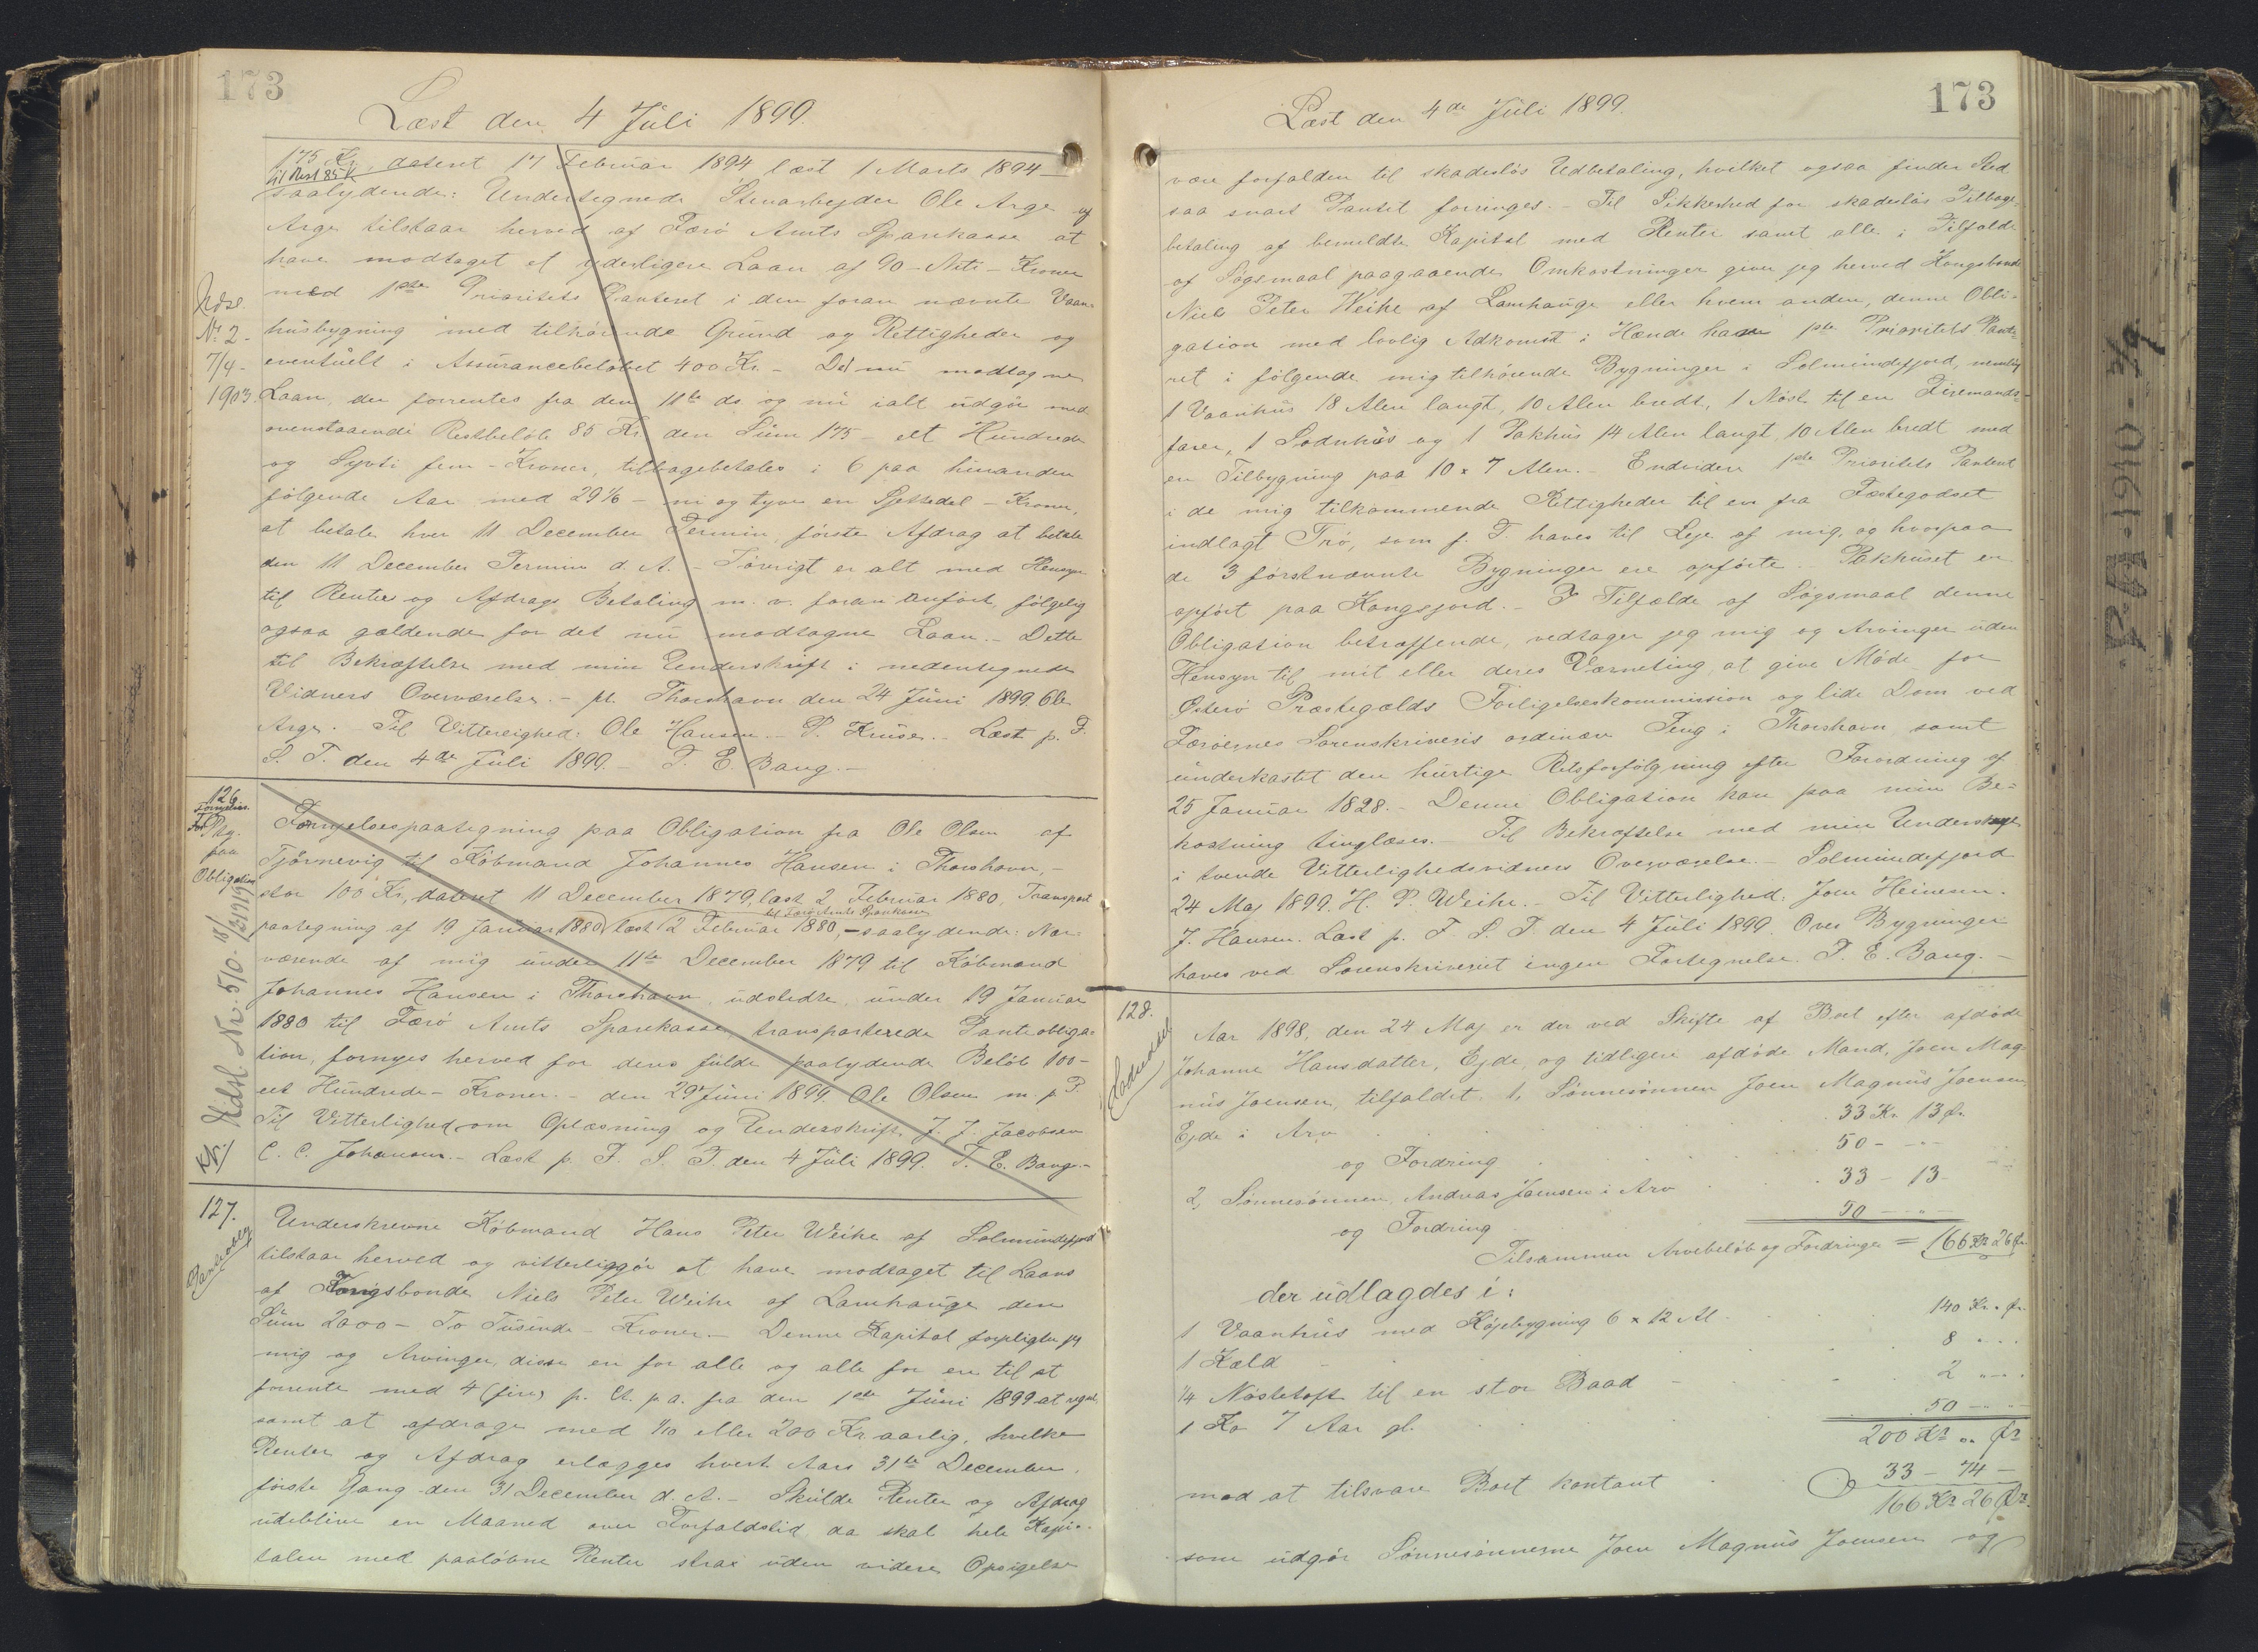 173
Læst den 4 Juli 1899.
175 Kr. dateret 17 Februar 1894, læst 1 Marts 1894 —
til Rest 85 K
saalydende: Undertegnede Stenarbejder Ole Arge af
Arge tilstaar herved af Færø Amts Sparekasse at
have modtaget et yderligere Laan af 90 – Niti – Kroner
med 1ste Prioritets Panteret i den foran nævnte Vaan-
husbygning med tilhørende Grund og Rettigheder og
eventuelt i Assurancebeløbet 400 Kr. – Det nu modtagne
Laan, der forrentes fra den 11te ds. og nu ialt udgør med
ovenstaaende Restbeløb 85 Kr. den Sum 175 – et Hundrede
og Sytti fem – Kroner, tilbagebetales i 6 paa hinanden
følgende Aar med 29 1/6 – ni og tyve en Sjettedel – Kroner,
at betale hver 11 December Termin, første Afdrag at betale
den 11 December Termin d. A. – Iøvrigt er alt med Hensyn
til Renter og Afdrags Betaling m. v. foran anført, følgelig
ogsaa gældende for det nu modtagne Laan. – Dette
til Bekræftelse med min Underskrift i nedentegnede
Vidners Overværelse. – pt. Thorshavn den 24 Juni 1899. Ole
Arge. – Til Vitterlighed: Ole Hansen. – P. Kruse. – Læst p. F.
S. T. den 4de Juli 1899. – T. E. Bang. –
Udsl.
Nr. 2 -
7/4 -
1903.
126.
Fornyelses
Ptg.
paa
Obligation
Fornyelsespaategning paa Obligation fra Ole Olsen af
Tjørnevig til Købmand Johannes Hansen i Thorshavn, –
stor 100 Kr, dateret 11 December 1879, læst 2 Februar 1880, Transport
til Færø Amts Sparekasse
paategning af 19 Januar 1880 læst 2 Februar 1880, – saalydende: Nær-
værende af mig under 11te December 1879 til Købmand
Johannes Hansen i Thorshavn udstedte, under 19 Januar
1880 til Færø Amts Sparekasse transporterede Panteobliga-
tion, fornyes herved for dens fulde paalydende Beløb 100 –
eet Hundrede – Kroner. – den 29 Juni 1899. Ole Olsen m. p. P.
Til Vitterlighed om Oplæsning og Underskrift J. J. Jacobsen
C. C. Johansen. – Læst p. F. S. T. den 4 Juli 1899. T. E. Bang. –
Udsl. Nr. 5/0
127.
Panteoblg
Underskrevne Købmand Hans Peter Weihe af Solmundefjord
tilstaar herved og vitterliggør at have modtaget til Laans
af Kongsbonde Niels Peter Weihe af Lamhauge den
Sum 2000 – To Tusinde – Kroner. – Denne Kapital forpligter jeg
mig og Arvinger, disse en for alle og alle for en til at
forrente med 4 (fire) p. Ct. p. a. fra den 1ste Juni 1899 at regne,
samt at afdrage med 1/10 eller 200 Kr. aarlig, hvilke
Renter og Afdrag erlægges hvert Aars 31te December,
første Gang den 31 December d. A. – Skulde Renter og Afdrag
udeblive en Maaned over Forfaldstid, da skal hele Kapi-
talen med paaløbne Renter strax uden videre Opsigelse
173
Læst den 4de Juli 1899.
være forfalden til skadesløs Udbetaling, hvilket ogsaa finder Sted
saa snart Pantet forringes. – Til Sikkerhed for skadesløs Tilbage-
betaling af bemeldte Kapital med Renter samt alle i Tilfælde
af Søgsmaal paagaaende Omkostninger giver jeg herved Kongsbonde
Niels Peter Weihe af Lamhauge eller hvem anden, denne Obli-
gation med lovlig Adkomst i Hænde have 1ste Prioritets Pante-
ret i følgende mig tilhørende Bygninger i Solmundefjord, nemlig
1 Vaanhus 18 Alen langt, 10 Alen bredt, 1 Nøst til en Firemands-
farer, 1 Sodnhus og 1 Pakhus 14 Alen langt, 10 Alen bredt med
en Tilbygning paa 10 x 7 Alen. – Endvidere 1ste Prioritets Panteret
i de mig tilkommende Rettigheder til en fra Fæstegodset
indlagt Trø, som p. T. haves til Leje af mig, og hvorpaa
de 3 førstnævnte Bygninger ere opførte. Pakhuset er
opført paa Kongsjord. – I Tilfælde af Søgsmaal denne
Obligation betræffende, vedtager jeg mig og Arvinger uden
Hensyn til mit eller deres Værneting, at give Møde for
Østerø Præstegælds Forligelseskommission og lide Dom ved
Færøernes Sorenskriveris ordinære Ting i Thorshavn samt
underkastet den hurtige Retsforfølgning efter Forordning af
25 Januar 1828. – Denne Obligation kan paa min Be-
kostning tinglæses. – Til Bekræftelse med min Underskrift
i tvende Vitterlighedsvidners Overværelse. – Solmundefjord
24 Maj 1899. H. P. Weihe. – Til Vitterlighed: Joen Heinesen.
J. Hansen. Læst p. F. S. T. den 4 Juli 1899. Over Bygninger
haves ved Sorenskriveriet ingen Fortegnelse. T. E. Bang. –
128.
Aar 1898, den 24 Maj er der ved Skifte af Boet efter afdøde
Johanne Hansdatter, Ejde, og tidligere afdøde Mand, Joen Mag-
nus Joensen, tilfaldet 1, Sønnesønnen Joen Magnus Joensen
Ejde i Arv 33 Kr. 13 Ør.
og Fordring 50 – „ –
2, Sønnesønnen, Andreas Joensen i Arv 33 – 13 –
og Fordring 50 – „ –
Tilsammen Arvebeløb og Fordringer = 166 Kr 26 Ør.
der udlagdes i:
1 Vaanhus med Højebygning 6 x 12 Al. 140 Kr. „ Ør.
1 Kæld 8 „ „
1/4 Nøstetoft til en stor Baad 2 „ – „
1 Ko 7 Aar gl. 50 – „ –
200 Kr „ Ør
mod at tilsvare Boet kontant 33 – 74 –
166 Kr 26 Ør.
som udgør Sønnesønnerne Joen Magnus Joensen og